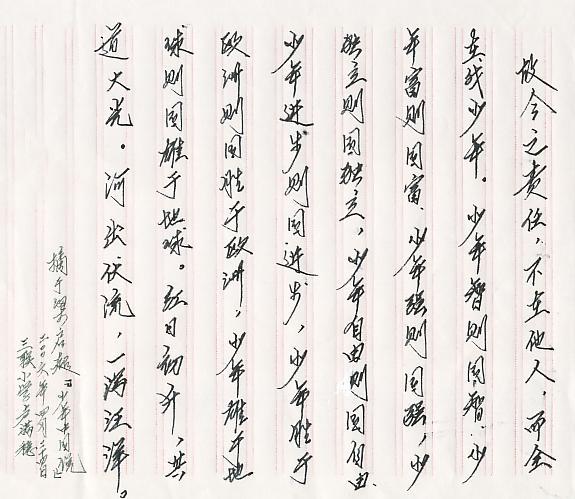 故今之责任，不在他人，而全
在我少年。少年智则国智，少
年富则国富，少年强则国强，少
年独立则国独立，少年自由则国自由，
少年进步则国进步，少年胜于
欧洲则国胜于欧洲，少年雄于地
球则国雄于地球。红日初升，其
道大光。河出伏流，一泻汪洋。
摘于梁启超《少年中国说》
二00六年四月二十四日
三联小学